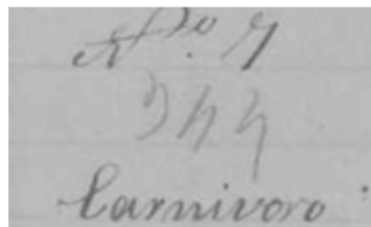 No. 7
344
Carnivoro